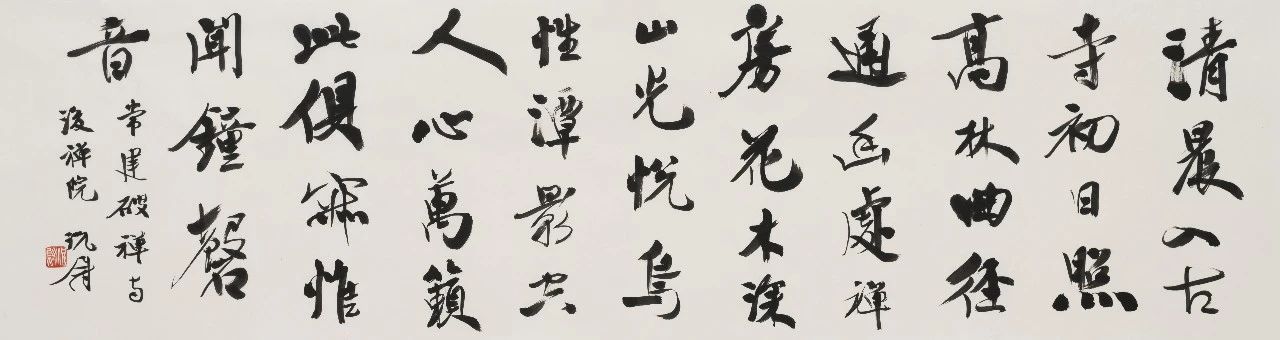 清晨入古
寺初日照
高林曲径
通幽處禅
房花木深
山光悦鸟
性潭影空
人心萬籟
此俱寂惟
聞鐘磬
音
常建破禅寺
後禅院